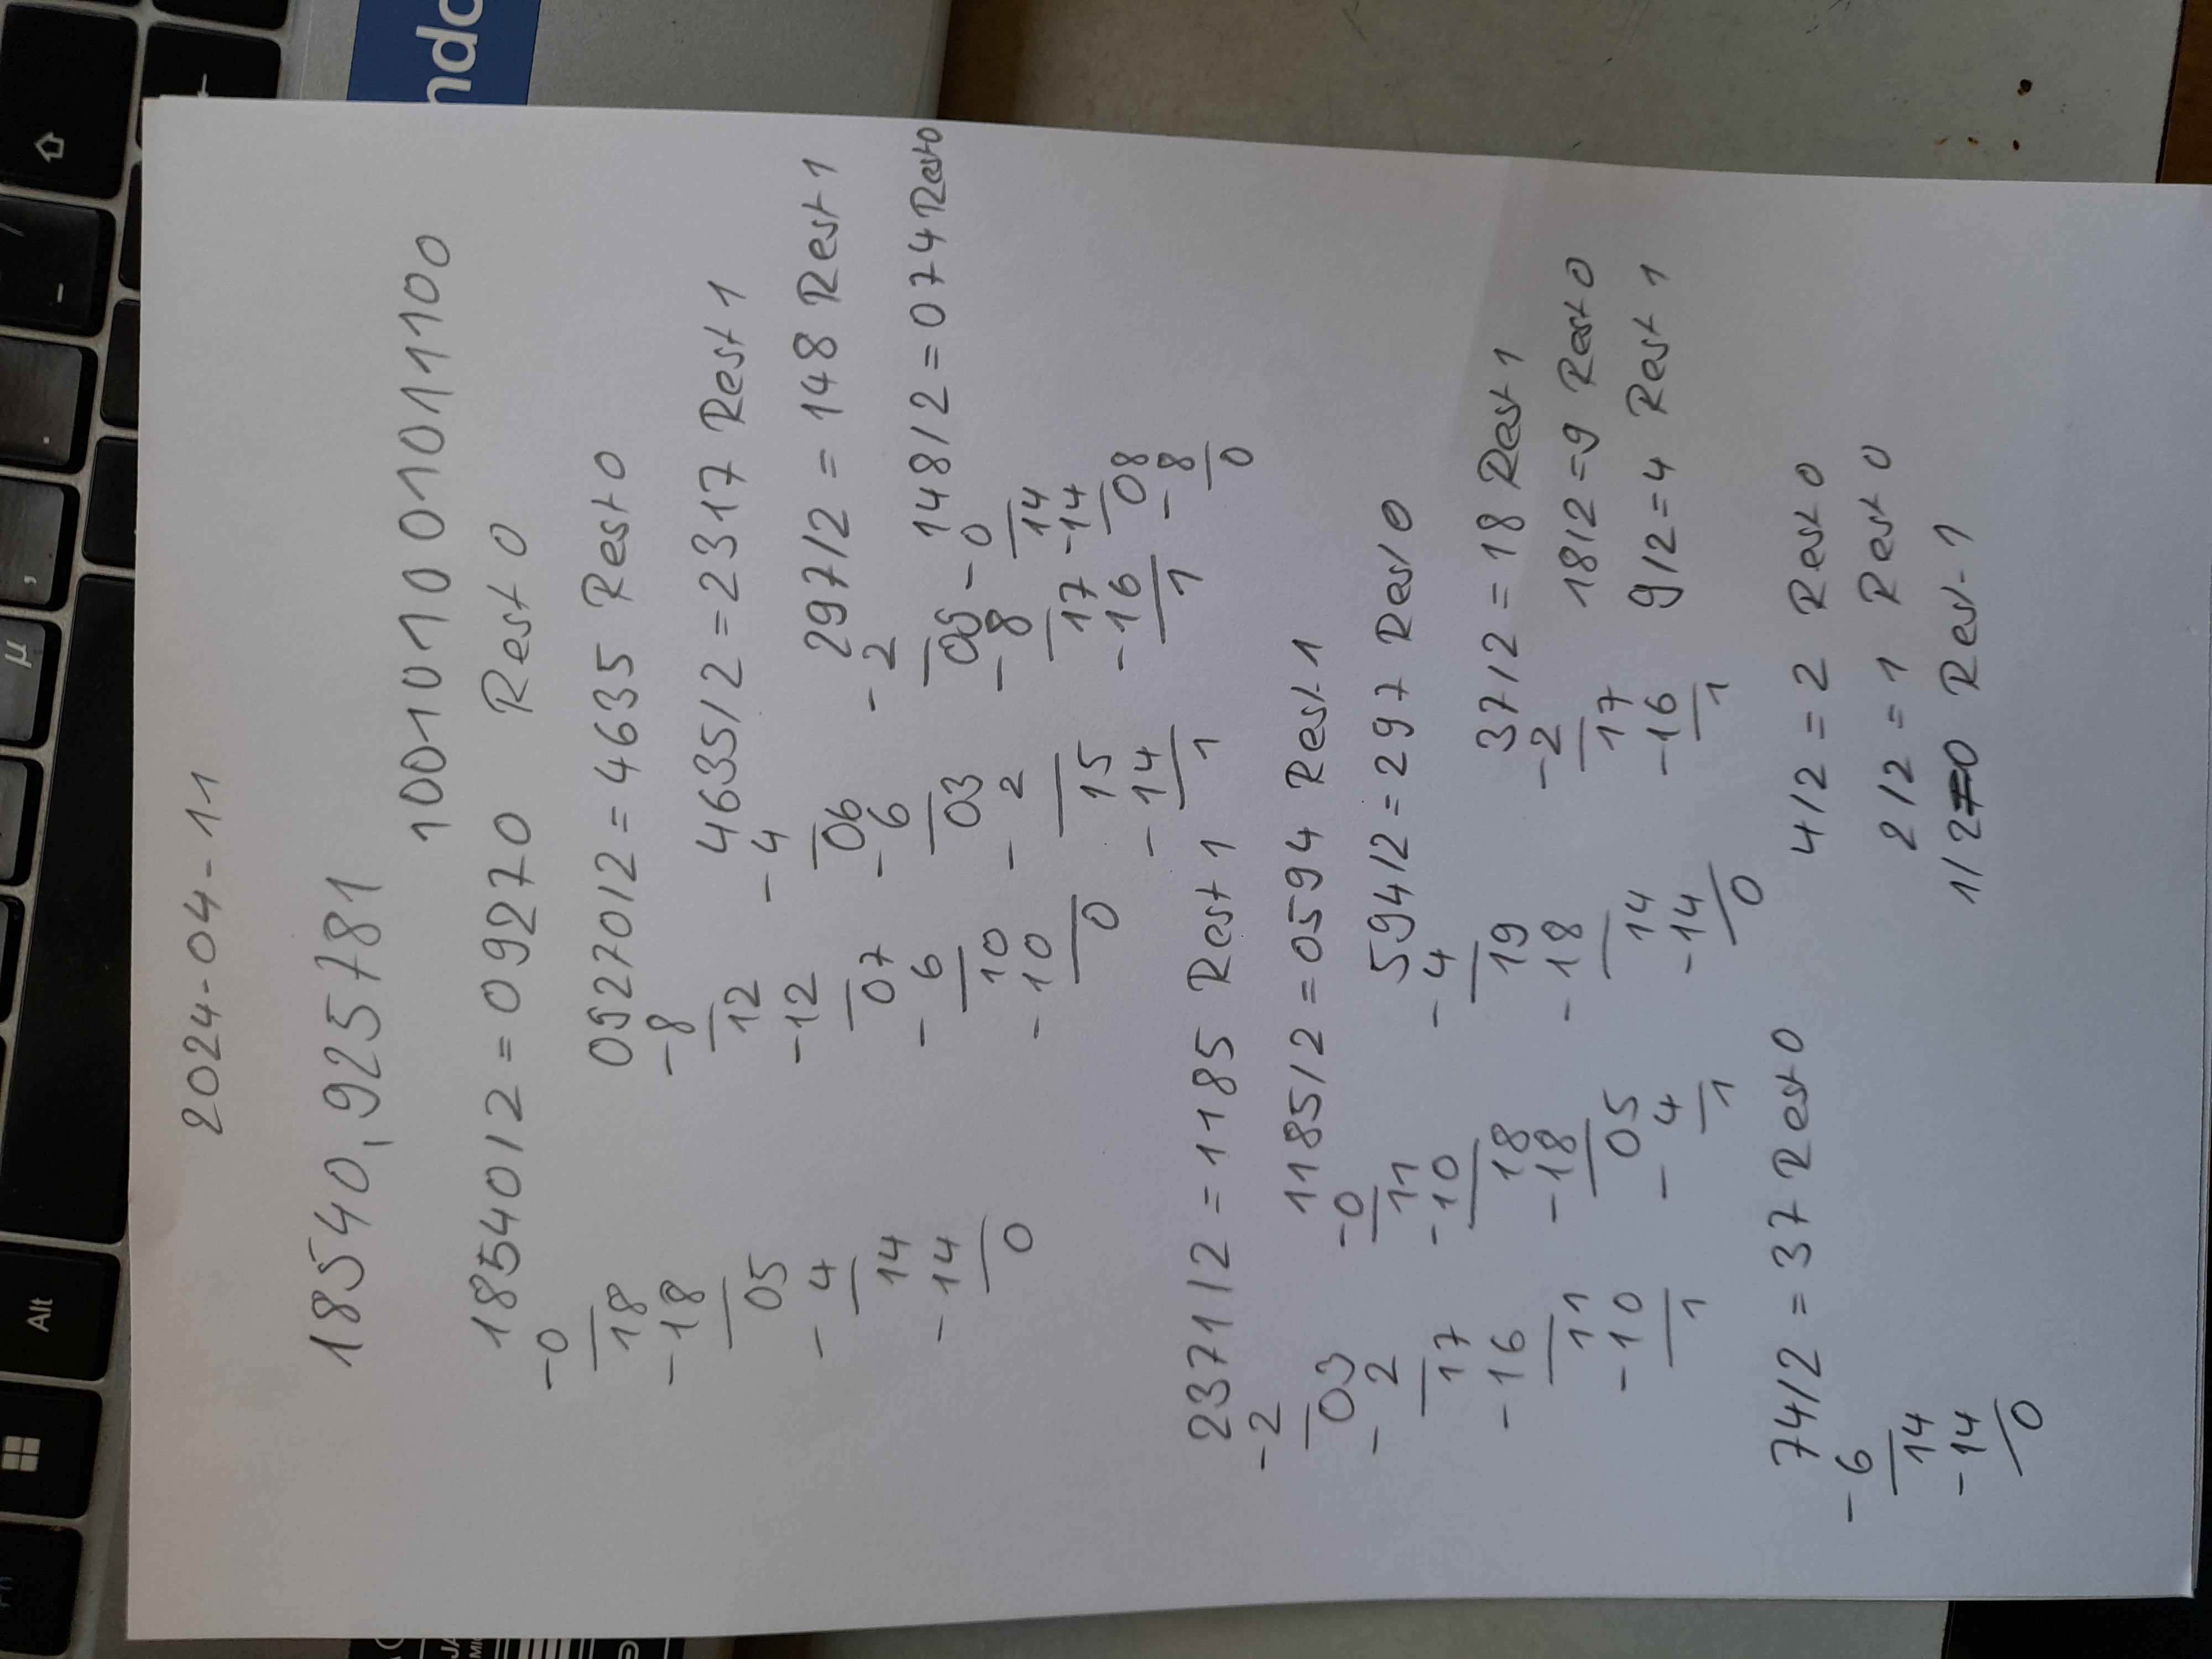 Alt
µ
,
.
-
2024-04-11
18540,925781
100101001011100
18540/2 = 09270 Rest 0
-0
18
-18
05
- 4
14
-14
0
09270/2 = 4635 Rest 0
-8
12
-12
07
- 6
10
-10
0
4635/2 = 2317 Rest 1
- 4
06
- 6
03
- 2
15
- 14
1
297/2 = 148 Rest 1
- 2
09
- 8
17
-16
1
148/2 = 074 Rest 0
- 0
14
-14
08
- 8
0
2371/2 = 1185 Rest 1
-2
03
- 2
17
-16
11
-10
1
1185/2 = 0594 Rest 1
-0
11
-10
18
-18
05
- 4
1
594/2 = 297 Rest 0
- 4
19
-18
14
-14
0
37/2 = 18 Rest 1
-2
17
-16
1
18/2 = 9 Rest 0
9/2 = 4 Rest 1
74/2 = 37 Rest 0
- 6
14
-14
0
4/2 = 2 Rest 0
2/2 = 1 Rest 0
1/2=0 Rest 1